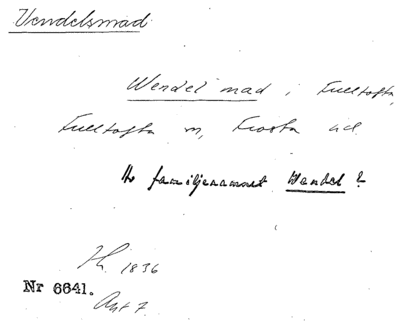 Vendelsmad
Wendel mad i Fulltofta,
Fulltofta sn, Frosta hd
Av familjenamnet Wendel?
H. 1836
Nr 6641.
Akt 7.